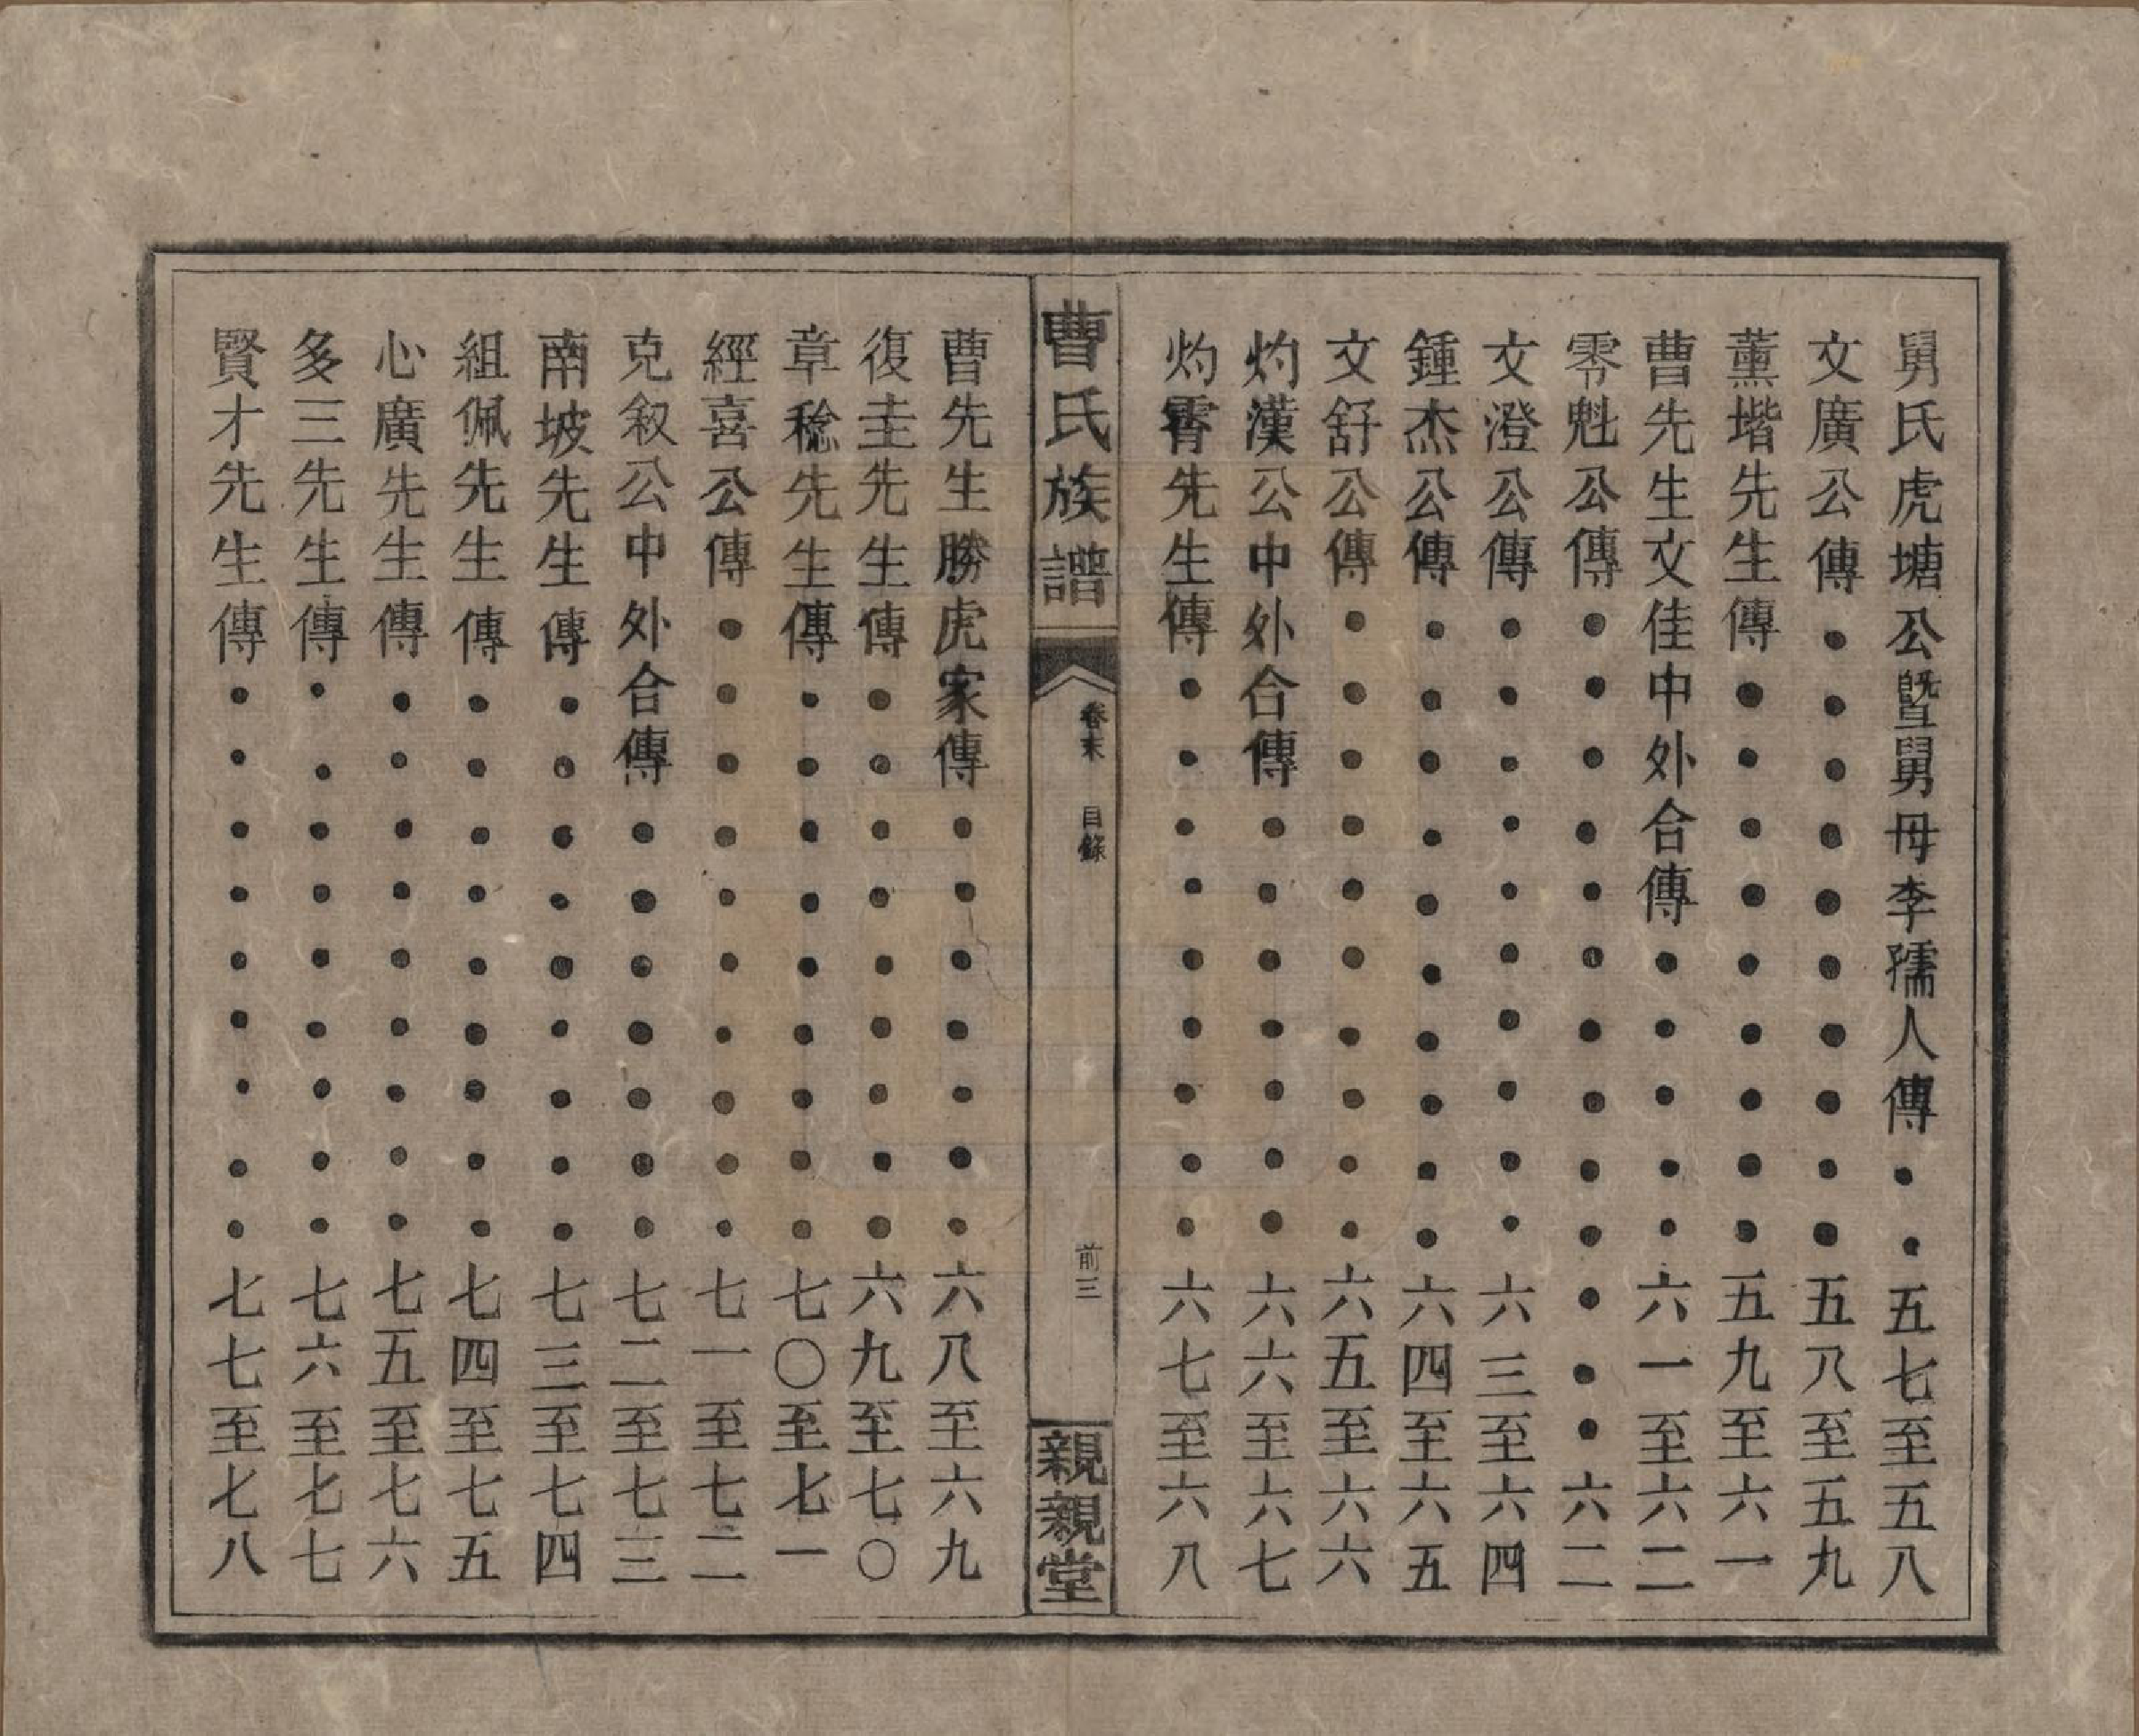 舅氏虎塘公暨舅母李孺人傳・・五七至五八
文廣公傳・・・・・・・・・・五八至五九
薰堦先生傳・・・・・・・・・五九至六一
曹先生文佳中外合傳・・・・・六一至六二
零魁公傳・・・・・・・・・・・・・六二
文澄公傳・・・・・・・・・・六三至六四
鍾杰公傳・・・・・・・・・・六四至六五
文舒公傳・・・・・・・・・・六五至六六
灼漢公中外合傳・・・・・・・六六至六七
灼霄先生傳・・・・・・・・・六七至六八
曹氏族譜 卷末 目錄 前三 親親堂
曹先生勝虎家傳・・・・・・・六八至六九
復圭先生傳・・・・・・・・・六九至七〇
章稔先生傳・・・・・・・・・七〇至七一
經喜公傳・・・・・・・・・・七一至七二
克敘公中外合傳・・・・・・・七二至七三
南坡先生傳・・・・・・・・・七三至七四
組佩先生傳・・・・・・・・・七四至七五
心廣先生傳・・・・・・・・・七五至七六
多三先生傳・・・・・・・・・七六至七七
賢才先生傳・・・・・・・・・七七至七八